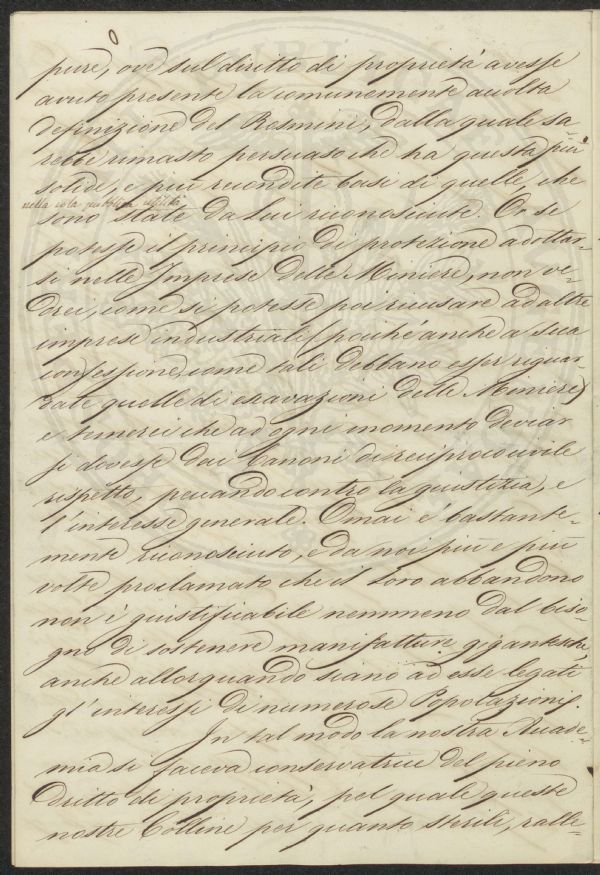 pure, ove sul diritto di proprietà avesse
avuto presente la comunemente accolta
definizione del Rosmini, dalla quale sa-
rebbe rimasto persuaso che ha questa più
solide, e più recondite basi di quelle, che
nella sola pubblica utilità
sono state da lui riconosciute. Or se
potesse il principio di protezione adottar-
si nelle Imprese delle Miniere, non ve-
drei, come si potesse poi ricusare ad altre
imprese industriali (poiché anche a sua
confessione, come tali debbano esser riguar-
date quelle di escavazioni delle Miniere)
e temerei che ad ogni momento deviar
si dovesse dai Canoni di reciproco civile
rispetto, peccando contro la giustizia, e
l'interesse generale. Omai è bastante-
mente riconosciuto, e da noi più e più
volte proclamato che il loro abbandono
non è giustificabile nemmeno dal biso-
gno di sostenere manifatture gigantesche,
anche allorquando siano ad esse legati
gl'interessi di numerose Popolazioni.
In tal modo la nostra Accade-
mia si faceva conservatrice del pieno
dritto di proprietà, pel quale queste
nostre Colline per quanto sterili, ralle-